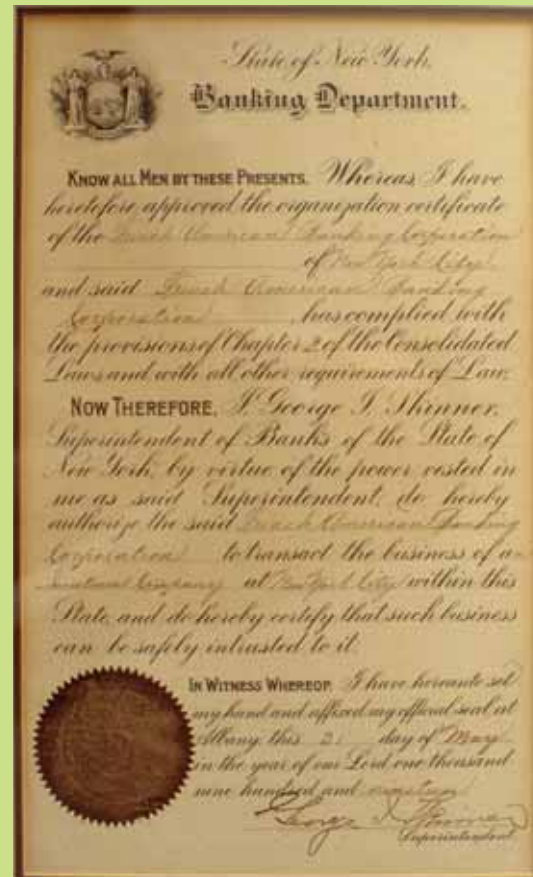 State of New York.
Banking Department.
KNOW ALL MEN BY THESE PRESENTS. Whereas, I have
heretofore approved the organization certificate
of the French American Banking Corporation
of New York City
and said French American Banking
Corporation has complied with
the provisions of Chapter 2 of the Consolidated
Laws and with all other requirements of Law.
NOW THEREFORE, I George I. Skinner,
Superintendent of Banks of the State of
New York, by virtue of the power vested in
me as said Superintendent, do hereby
authorize the said French American Banking
Corporation to transact the business of a
Company at New York City within this
State, and do hereby certify that such business
can be safely intrusted to it.
IN WITNESS WHEREOF, I have hereunto set
my hand and affixed my official seal at
Albany this day of May
in the year of our Lord one thousand
nine hundred and nineteen
George I. Skinner
Superintendent